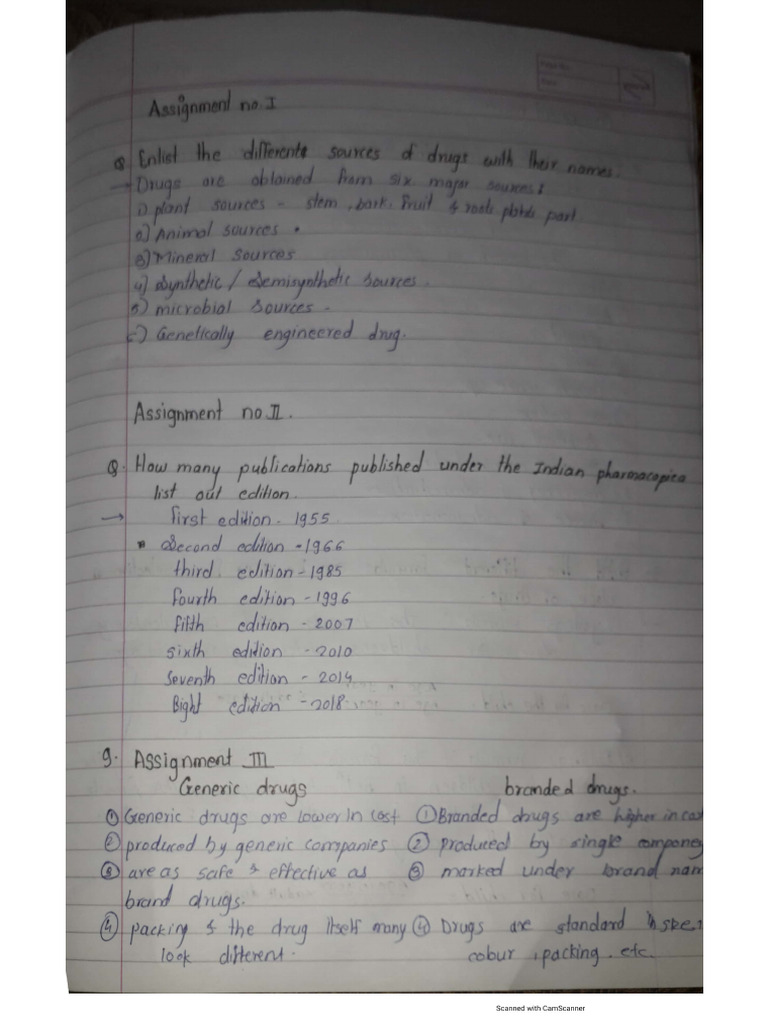 Assignment no. I
Q Enlist the differents sources of drugs with their names.
→ Drugs are obtained from six major sources :
1) plant sources - stem, bark. fruit & roots part
2) Animal sources .
3) Mineral sources
4) Synthetic / Semisynthetic sources.
5) microbial sources -
6) Genetically engineered drug.
Assignment no. II.
Q. How many publications published under the Indian pharmacopica
list out edition.
→ first edition - 1955.
Second edition - 1966
third edition - 1985
fourth edition - 1996
fifth edition - 2007
sixth edition - 2010
seventh edition - 2014
Eight edition - 2018.
9. Assignment III
Generic drugs branded drugs.
① Generic drugs are lower in cost ① Branded drugs are higher in cos
② produced by generic companies ② produced by single compney
③ are as safe & effective as ③ marked under brand nam
brand drugs.
④ packing & the drug itself many ④ Drugs are standard in
look different. colour , packing. etc.
Scanned with CamScanner